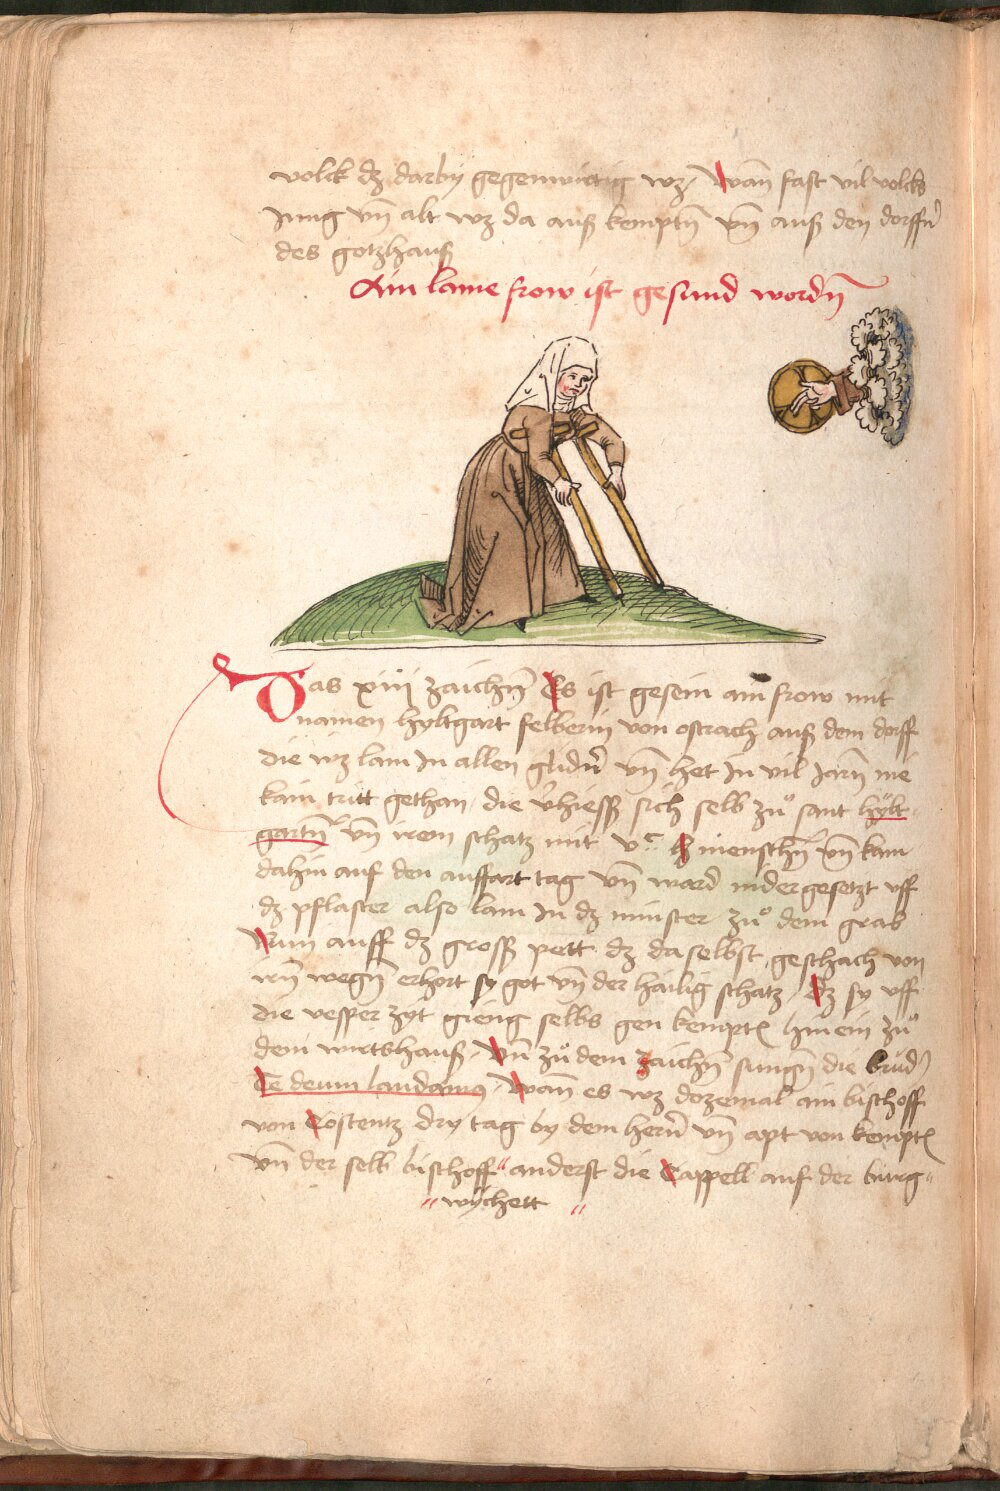 volck dz darby gegenwirtig wz, Wañ fast vil volcks
Jung vñ alt wz da auß kemptñ vñ auß den dorffñ
des gotzhauß
Ain lame frow ist gesund wordñ
Das xiiij zaichñ Es ist gesein ain frow mit
namen hyltgart felberin von ostrach auß dem dorff
die wz lam In allen glidñ vñ het In vil Jarñ nie
kain tritt gethan, die v̾hieß sich selb zů sant hylt
gartñ vñ irem schatz mit menschñ vñ kam
dahin auf den auffart tag vñ ward nidergesetzt vff
dz pflaster also lam In dz minster zů dem grab
Nun auff dz groß pett dz daselbst geschach von
irñ wegñ erhort sy got vñ der hailig schatz, dz sy vff
die vesper zyt gieng selbs gen kempt̃ hinein zů
dem wirtshauß, Vñ zů dem zaichñ sungñ die brüd̾
Te deum laudamꝰ, Wañ es wz dozemal ain bischoff
von Costentz dry tag by dem herñ vñ apt von kempt̃
vñ der selb bischoff " anderst die Cappell auf der burg "
" wychett "